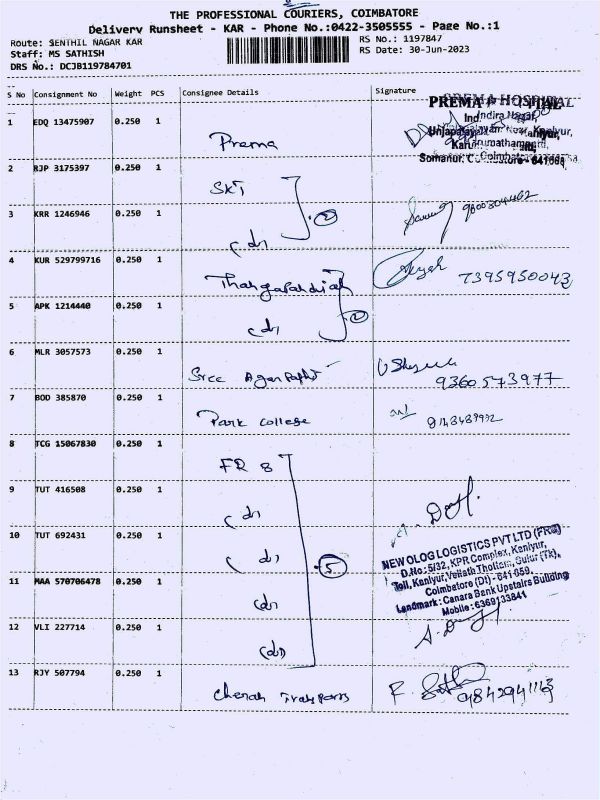 THE PROFESSIONAL COURIERS, COIMBATORE
Delivery Runsheet - KAR - Phone No.:0422-3505555 - Page No.:1
Route: SENTHIL NAGAR KAR
RS No.: 1197847
Staff: MS SATHISH
RS Date: 30-Jun-2023
DRS No.: DCJB119784701
S No Consignment No Weight PCS Consignee Details Signature
PREMA HOSPITAL
Indira Nagar,
1 EDQ 13475907 0.250 1 Prema
Somanur, Coimbatore - 641 668
2 RJP 3175397 0.250 1 SKT
3 KRR 1246946 0.250 1 (do) 2
4 KUR 529799716 0.250 1 Thangapandiah 7395950043
5 APK 1214440 0.250 1 (do) 2
6 MLR 3057573 0.250 1 Sree 9360573977
7 BOD 385870 0.250 1 Park College
8 TCG 15067830 0.250 1 FR 8
9 TUT 416508 0.250 1 (do)
10 TUT 692431 0.250 1 (do) 5
NEW OLOG LOGISTICS PVT LTD (FRG)
D.No: 5/32, KPR Complex, Kaniyur,
Toll, Kaniyur, Vellath Thottam, Sulur (TK),
Coimbatore (Dt) - 641 059.
Landmark : Canara Bank Upstairs Building
Mobile : 6369133841
11 MAA 570706478 0.250 1 (do)
12 VLI 227714 0.250 1 (do)
13 RJY 507794 0.250 1 Cheran Transports 9842941113